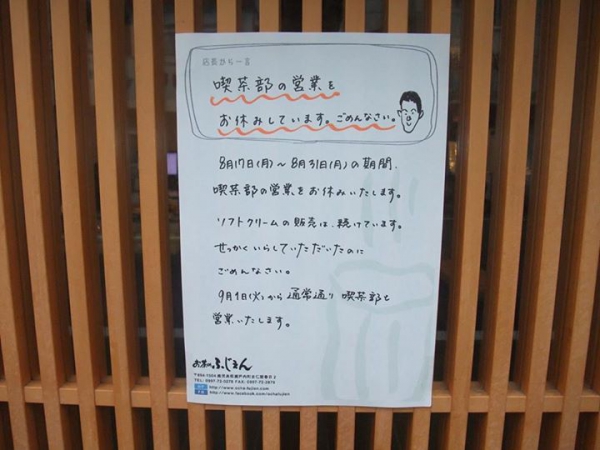 店長から一言
喫茶部の営業を
お休みしています。ごめんなさい。
8月17日(月)～8月31日(月)の期間、
喫茶部の営業をお休みいたします。
ソフトクリームの販売は、続けています。
せっかくいらしていただいたのに
ごめんなさい。
9月1日(火)から通常通り喫茶部を
営業いたします。
お茶のふじえん